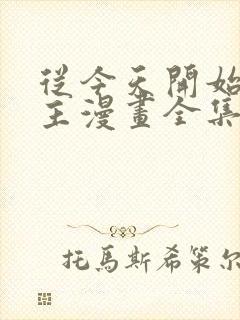 從今天開始
主漫畫全集
托馬斯希策尔